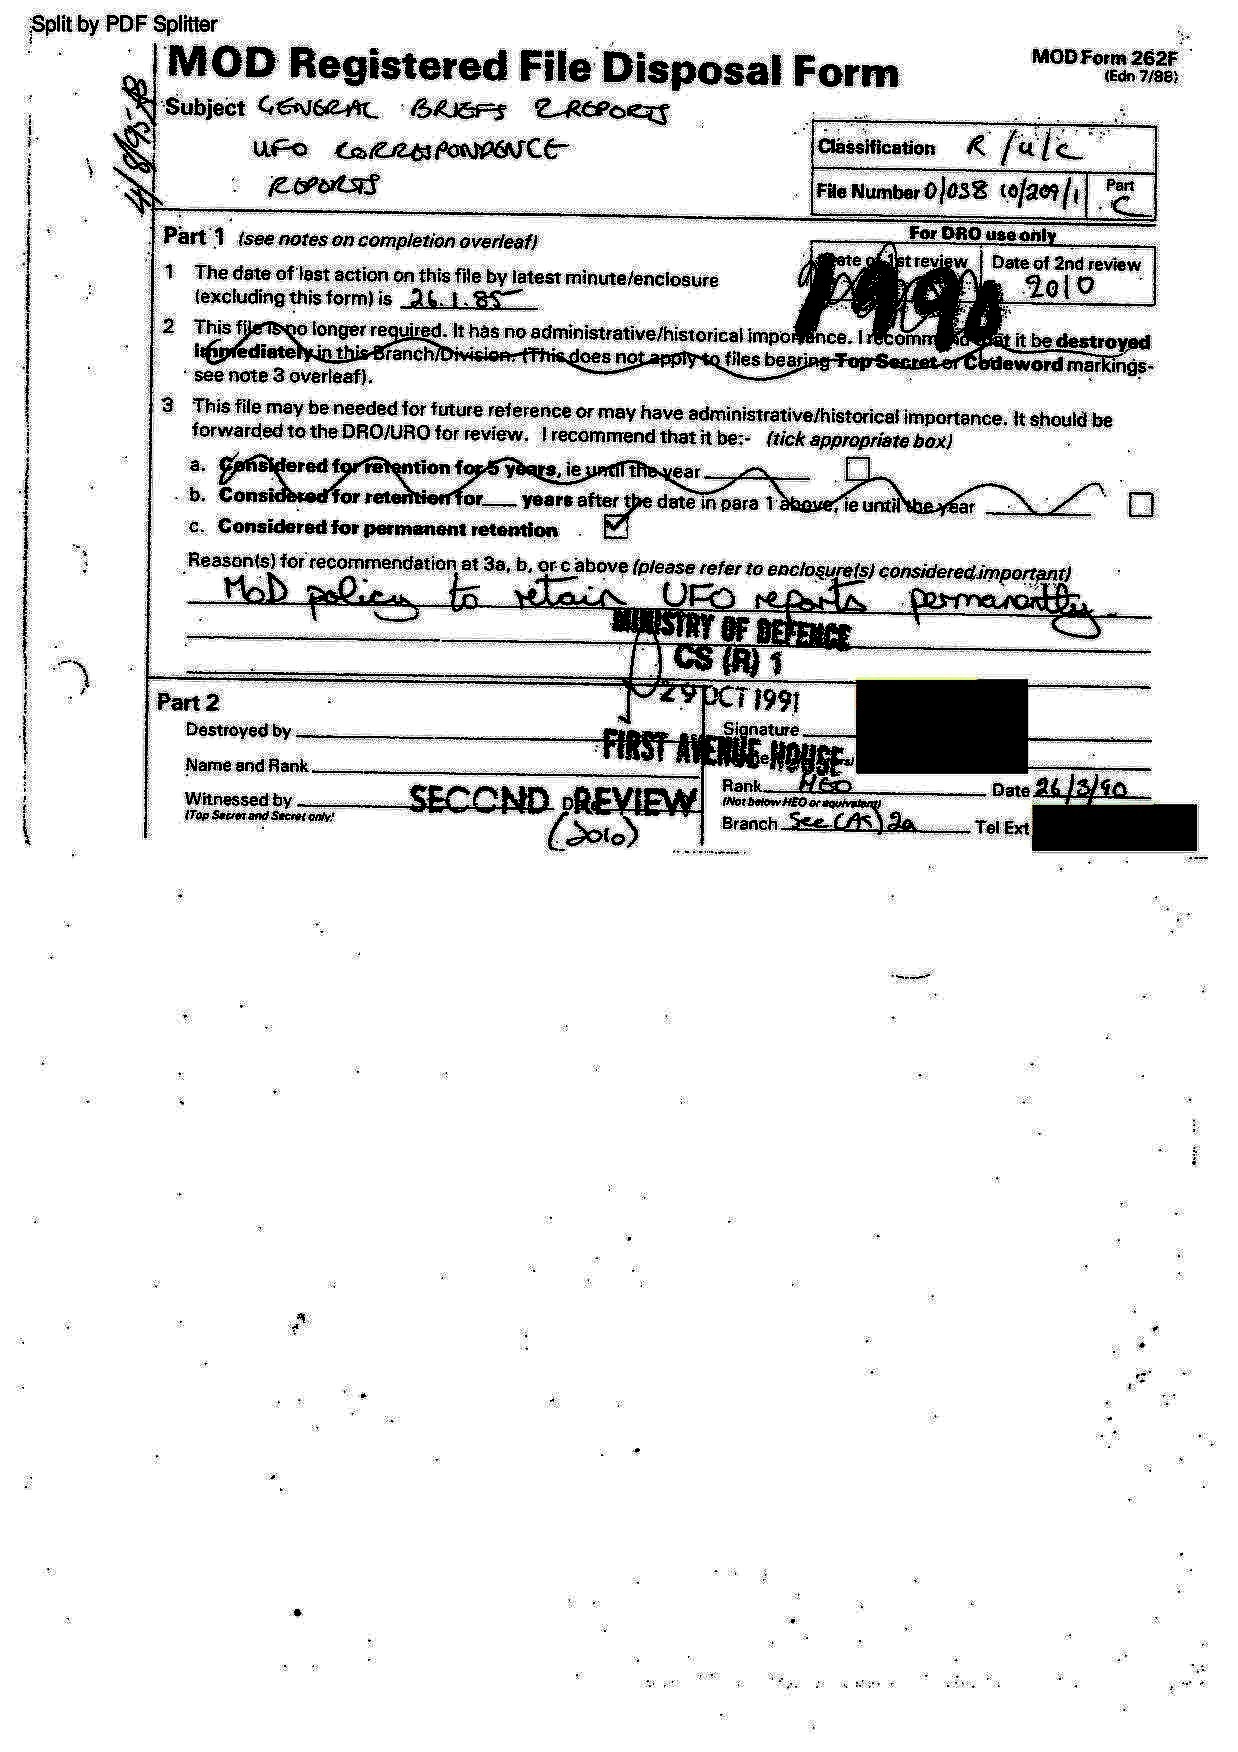 Split by PDF Splitter
MOD Registered File Disposal Form
MOD Form 262F
(Edn 7/88)
Subject GENERAL BRIEFS & REPORTS
UFO CORRESPONDENCE
REPORTS
Classification R/U/C
File Number D/DS8 10/209/1 Part C
4/8/95
Part 1 (see notes on completion overleaf)
For DRO use only
Date of 1st review
1990
Date of 2nd review
2010
1 The date of last action on this file by latest minute/enclosure
(excluding this form) is 26.1.85
2 This file is no longer required. It has no administrative/historical importance. I recommend that it be destroyed
immediately in this Branch/Division. (This does not apply to files bearing Top Secret or Codeword markings-
see note 3 overleaf).
3 This file may be needed for future reference or may have administrative/historical importance. It should be
forwarded to the DRO/URO for review. I recommend that it be:- (tick appropriate box)
a. Considered for retention for 5 years, ie until the year
b. Considered for retention for years after the date in para 1 above, ie until the year
c. Considered for permanent retention
Reason(s) for recommendation at 3a, b, or c above (please refer to enclosure(s) considered important)
MoD policy to retain UFO reports permanantly
MINISTRY OF DEFENCE
CS (R) 1
29 OCT 1991
FIRST AVENUE HOUSE
Part 2
Destroyed by
Name and Rank
Witnessed by
(Top Secret and Secret only)
SECOND REVIEW
(2010)
Signature
Rank HEO
(Not below HEO or equivalent)
Date 26/3/90
Branch Sec (AS) 2a Tel Ext